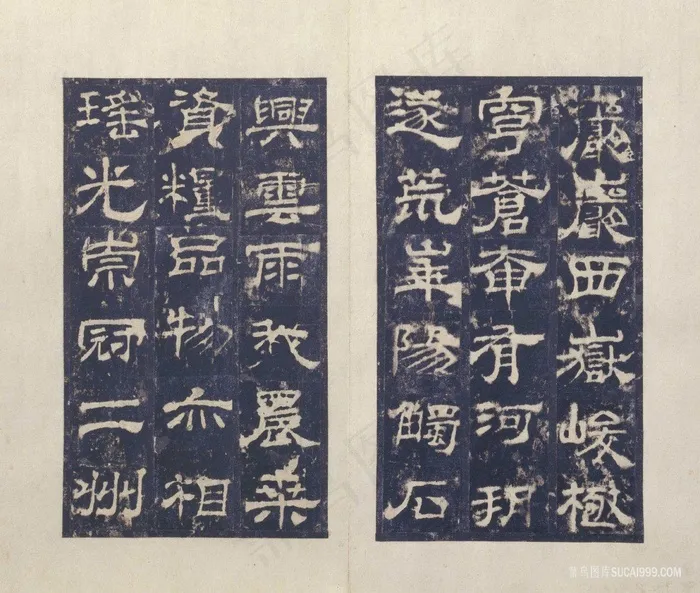 巖巖西嶽峻極
穹蒼奄有河朔
遂荒華陽觸石
興雲雨我農桑
資糧品物亦相
瑤光崇冠二州
菜鸟图库 SUCAI999.COM